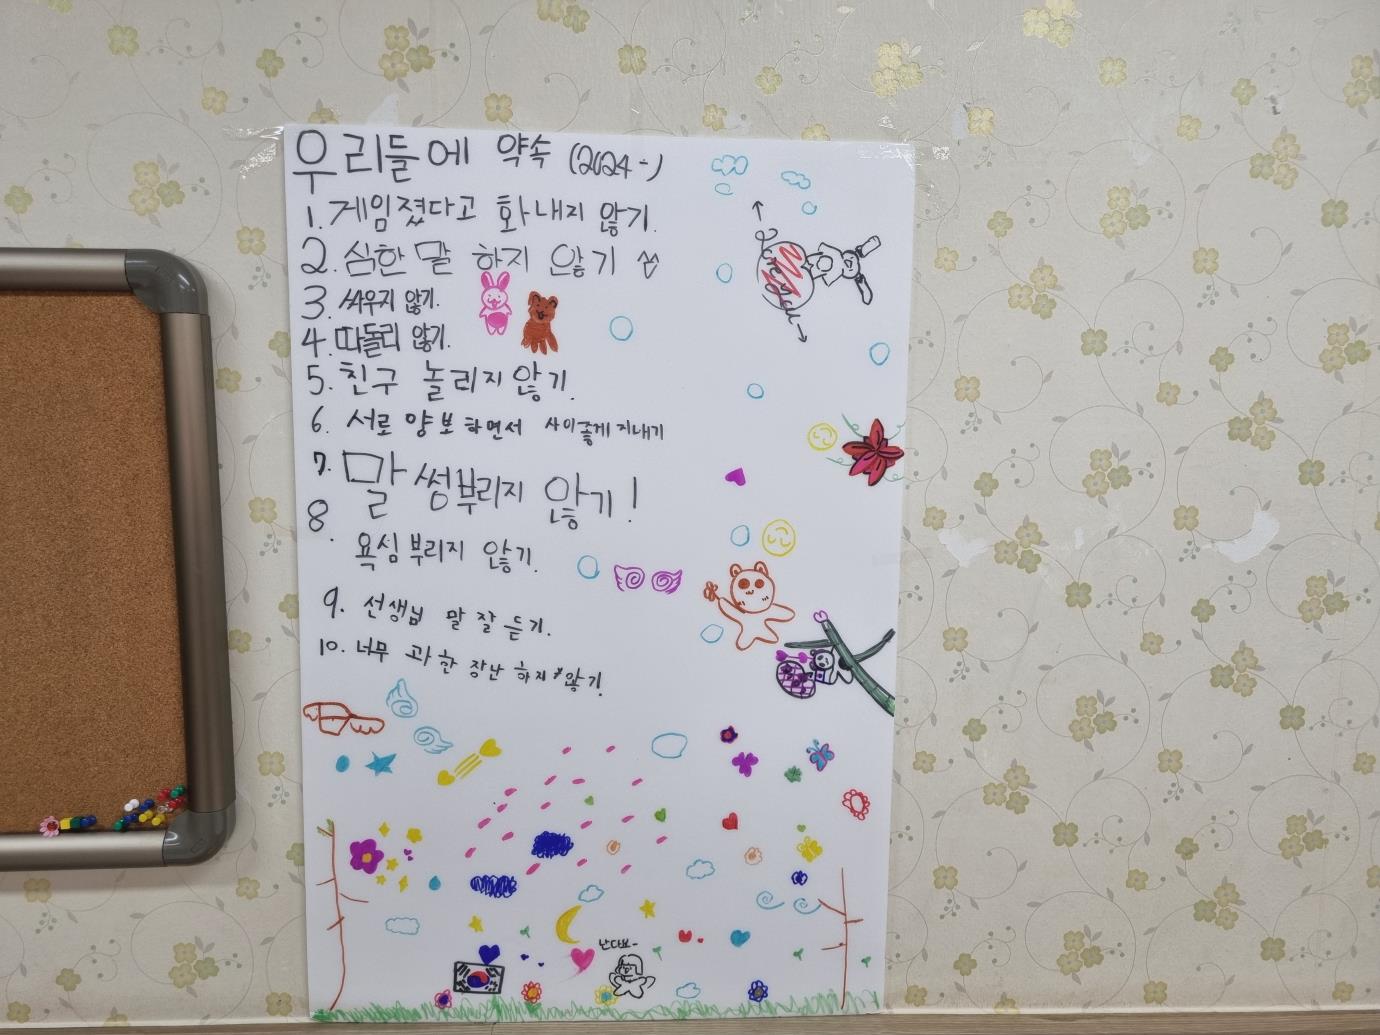 우리들에 약속 (2024-)
1. 게임 졌다고 화내지 않기.
2. 심한 말 하지 않기
3. 싸우지 않기.
4. 따돌리 않기.
5. 친구 놀리지 않기.
6. 서로 양보하면서 사이좋게 지내기
7. 말썽부리지 않기!
8. 욕심부리지 않기.
9. 선생님 말 잘 듣기.
10. 너무 과한 장난 하지 않기!
난다요~